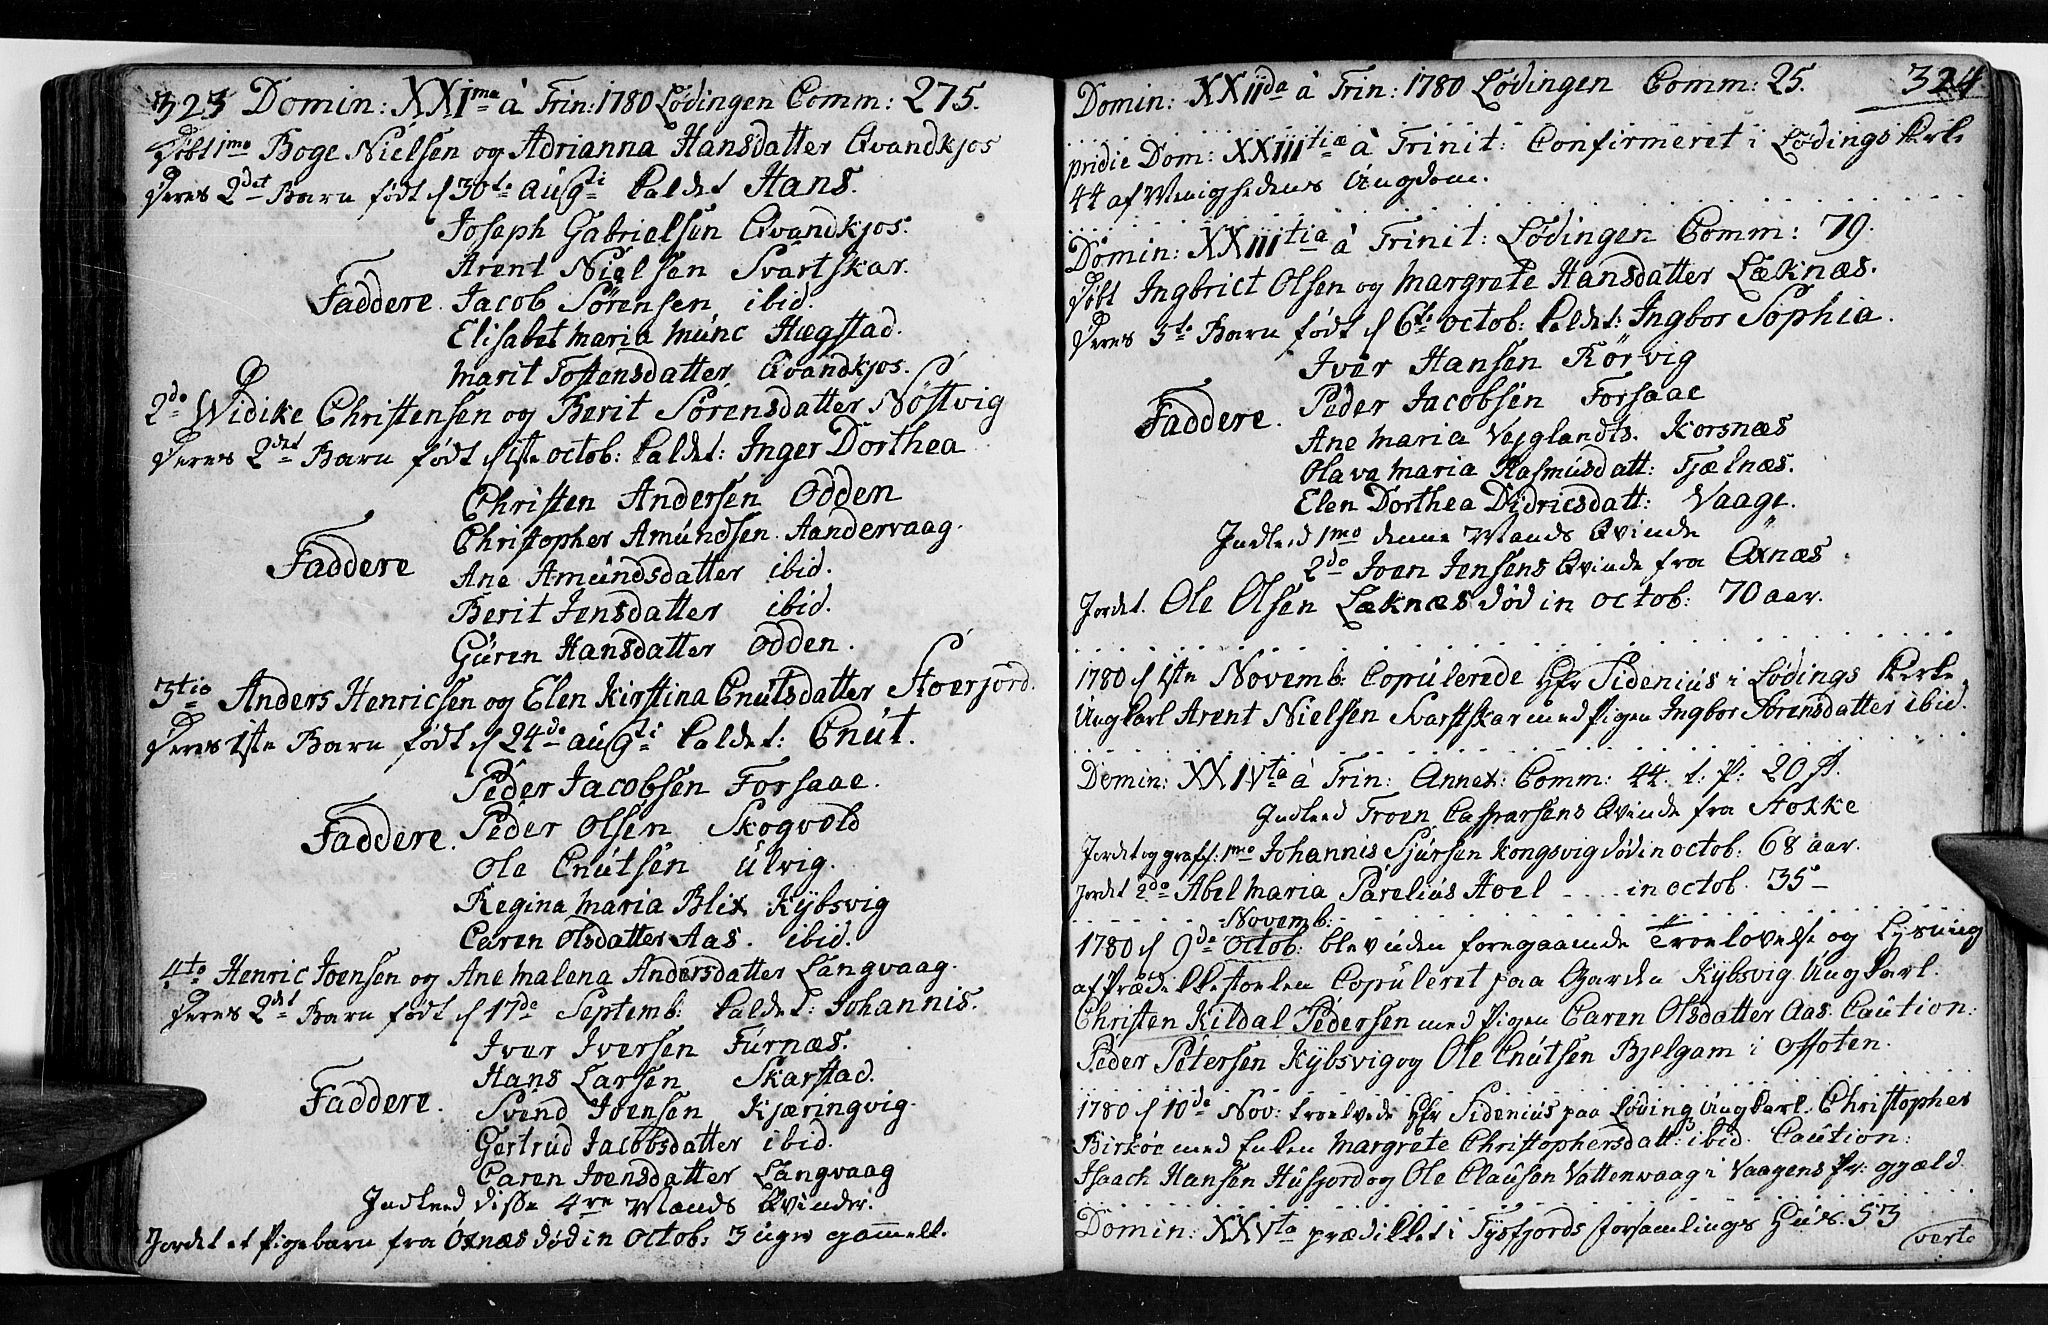 323 Domin: XXIma à Trin: 1780 Lødingen Comm: 275.
Døbt 1mo Boge Nielsen og Adrianna Hansdatter Qvandkjos
Deres 2det Barn født d 30te augti kaldet Hans.
Joseph Gabrielsen Qvandkjos.
Arent Nielsen Svartskar.
Faddere. Jacob Sørensen ibid.
Elisabet maria Munc Hægstad.
marit Tostensdatter Qvandkjos.
2do Widike Christensen og Berit Sørensdatter Nøstvig
Deres 2det Barn født d 1ste octob: kaldet: Inger Dorthea
Christen Andersen Odden
Christopher Amundsen Aandervaag.
Faddere Ane Amundsdatter ibid.
Berit Jensdatter ibid.
Guren Hansdatter Odden.
3tio Anders Henricsen og Elen Kirstina Cnutsdatter Stoerjord.
Deres 1ste Barn født d 24de augti kaldet: Cnut.
Peder Jacobsen Forsaae.
Faddere. Peder Olsen Skogvold
Ole Cnutsen Ulvig.
Regina maria Blix Kybsvig
Caren Olsdatter Aas. ibid.
4to Henric Joensen og Ane malena Andersdatter Langvaag.
Deres 2det Barn født d 17de Septemb: kaldet: Johannis.
Iver Iversen Furnæs.
Hans Larsen Skarstad.
Faddere. Svend Joensen Kjæringvig.
Gertrud Jacobsdatter ibid.
Caren Joensdatter Langvaag
Indleed disse 4re Mænds Qvinder.
Jordet et Pigebarn fra Öxnæs død in Octob: 3 uger gammell.
Domin: XXIIda à Trin: 1780 Lødingen Comm: 25. 324
pridie Dom: XXIIItiæ à Trinit: Confirmeret i Lødings Kirke
44 af Menighedens Ungdom.
Domin: XXIIItia à Trinit: Lødingen Comm: 79.
Døbt Ingbrict Olsen og Margrete Hansdatter Læknæs.
Deres 3te Barn født d 6te octob: kaldet: Ingbor Sophia.
Iver Hansen Rörvig
Peder Jacobsen Forsaae
Faddere. Ane maria Vejglandts. Korsnæs
Olava maria Rasmusdatt: Fjælnæs.
Elen Dorthea Didricsdatt: Vaage.
Indleed 1mo denne Mands Qvinde
2do Joen Jensens Qvinde fra Öxnæs.
Jordet. Ole Olsen Læknæs død in octob: 70 aar.
1780 d 1ste Novemb: Copulerede Hr Sidenius i Lødings Kirke,
Ungkarl Arent Nielsen Svartskar med Pigen Ingbor Sörensdatter ibid.
Domin: XXIVta à Trin: Annex: Comm: 44. t: P: 20 ß.
Indleed Troen Casparsens Qvinde fra Stokke
Jordet og graff: 1mo Johannis Sjursen Kongsvig død in octob: 68 aar.
Jordet 2do Abel maria Parelius Hoel - - - in octob. 35 –
Novemb:
1780 d 9de octob: blev uden foregaaende Troelovelse og Lysning
af Prædikkestoelen Copuleret paa Gaarden Kybsvig Ungkarl.
Christen Kildal Pedersen med Pigen Caren Olsdatter Aas. Caution:
Peder Petersen Kybsvig og Ole Cnutsen Bjelgam i Offoten.
1780 d 10de Nov: troelvede Hr Sidenius paa Løding Ungkarl. Christopher
Birköe med Enken Margrete Christophersdatt: ibid. Caution:
Isaach Hansen Husjord og Ole Clausen Vattenvaag i Vaagens Pr: gjæld.
Domin: XXVta prædikket i Tysfjords forsamlings Huus. 53
verte